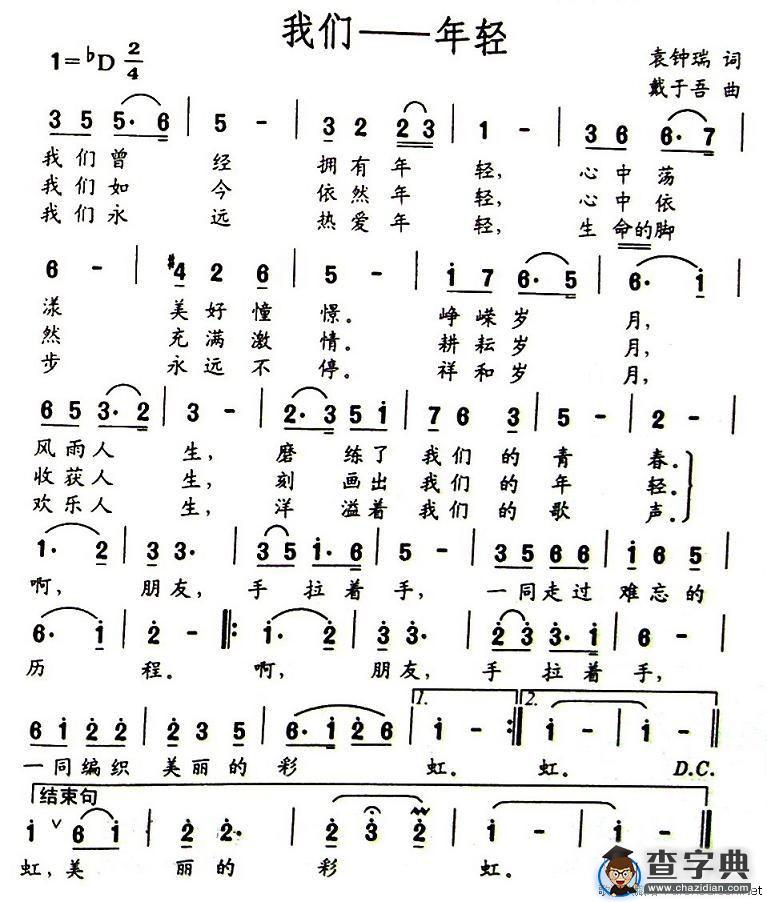 我们——年轻
1=♭D 2/4
袁钟瑞 词
戴于吾 曲
3 5 5· 6 | 5 - | 3 2 2 3 | 1 - | 3 6 6· 7 |
我们曾 经 拥有年 轻, 心中荡
我们如 今 依然年 轻, 心中依
我们永 远 热爱年 轻, 生命的脚
6 - | #4 2 6 | 5 - | i 7 6· 5 | 6· i |
漾 美好憧 憬。 峥嵘岁 月,
然 充满激 情。 耕耘岁 月,
步 永远不 停。 祥和岁 月,
6 5 3· 2 | 3 - | 2· 3 5 i | 7 6 3 | 5 - | 2 - |
风雨人 生, 磨 练了 我们的 青 春。
收获人 生, 刻 画出 我们的 年 轻。
欢乐人 生, 洋 溢着 我们的 歌 声。
1· 2 | 3 3· | 3 5 i· 6 | 5 - | 3 5 6 6 | i 6 5 |
啊, 朋友, 手 拉着 手, 一同走过 难忘的
6· i | 2 - |: i· 2 | 3 3· | 2 3 3· i | 6 - |
历 程。 啊, 朋友, 手 拉着 手,
1. 2.
6 i 2 2 | 2 3 5 | 6· i 2 6 | i - :| i - | i - |
一同编织 美丽的 彩 虹。 虹。 D.C.
结束句
i ∨ 6 i | 2 2· | 2 2· | 2 3 2 | i - | i - |
虹,美 丽的 彩 虹。
查字典
www.chazidian.com